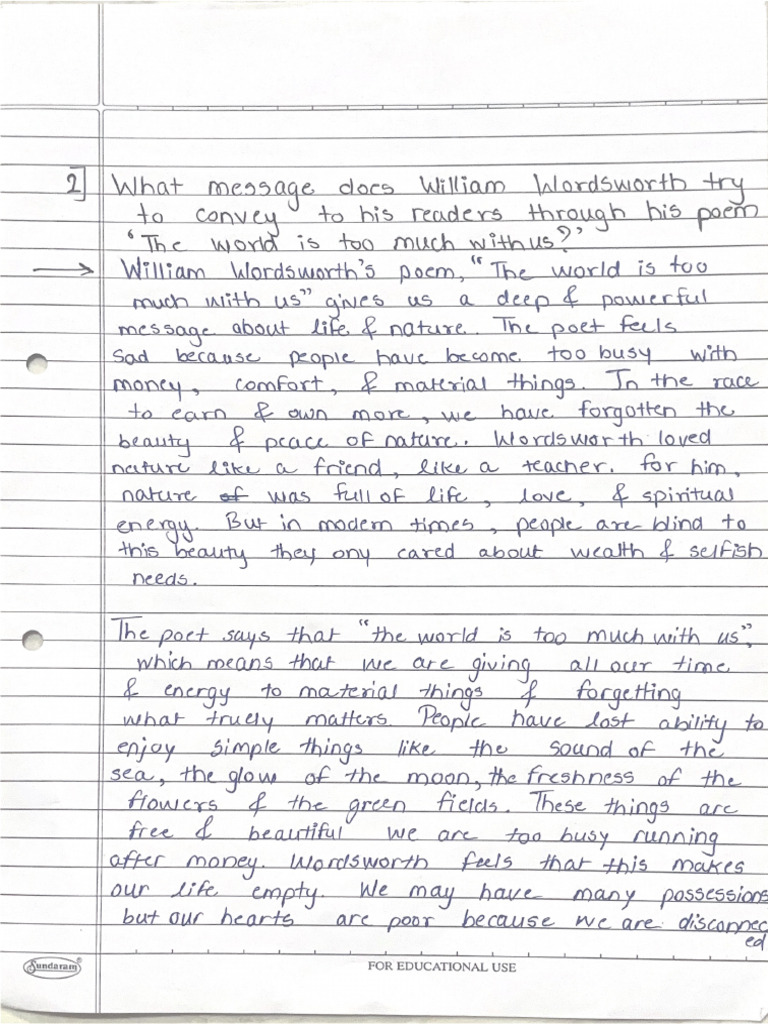 2] What message does William Wordsworth try
to convey to his readers through his poem
'The world is too much with us?'
→ William Wordsworth's poem, "The world is too
much with us" gives us a deep & powerful
message about life & nature. The poet feels
sad because people have become too busy with
money, comfort, & material things. In the race
to earn & own more, we have forgotten the
beauty & peace of nature. Wordsworth loved
nature like a friend, like a teacher. for him,
nature of was full of life, love, & spiritual
energy. But in modern times, people are blind to
this beauty they ony cared about wealth & selfish
needs.
The poet says that "the world is too much with us",
which means that we are giving all our time
& energy to material things & forgetting
what truely matters. People have lost ability to
enjoy simple things like the sound of the
sea, the glow of the moon, the freshness of the
flowers & the green fields. These things are
free & beautiful we are too busy running
after money. Wordsworth feels that this makes
our life empty. We may have many possessions
but our hearts are poor because we are disconnec
ed
Sundaram®
FOR EDUCATIONAL USE